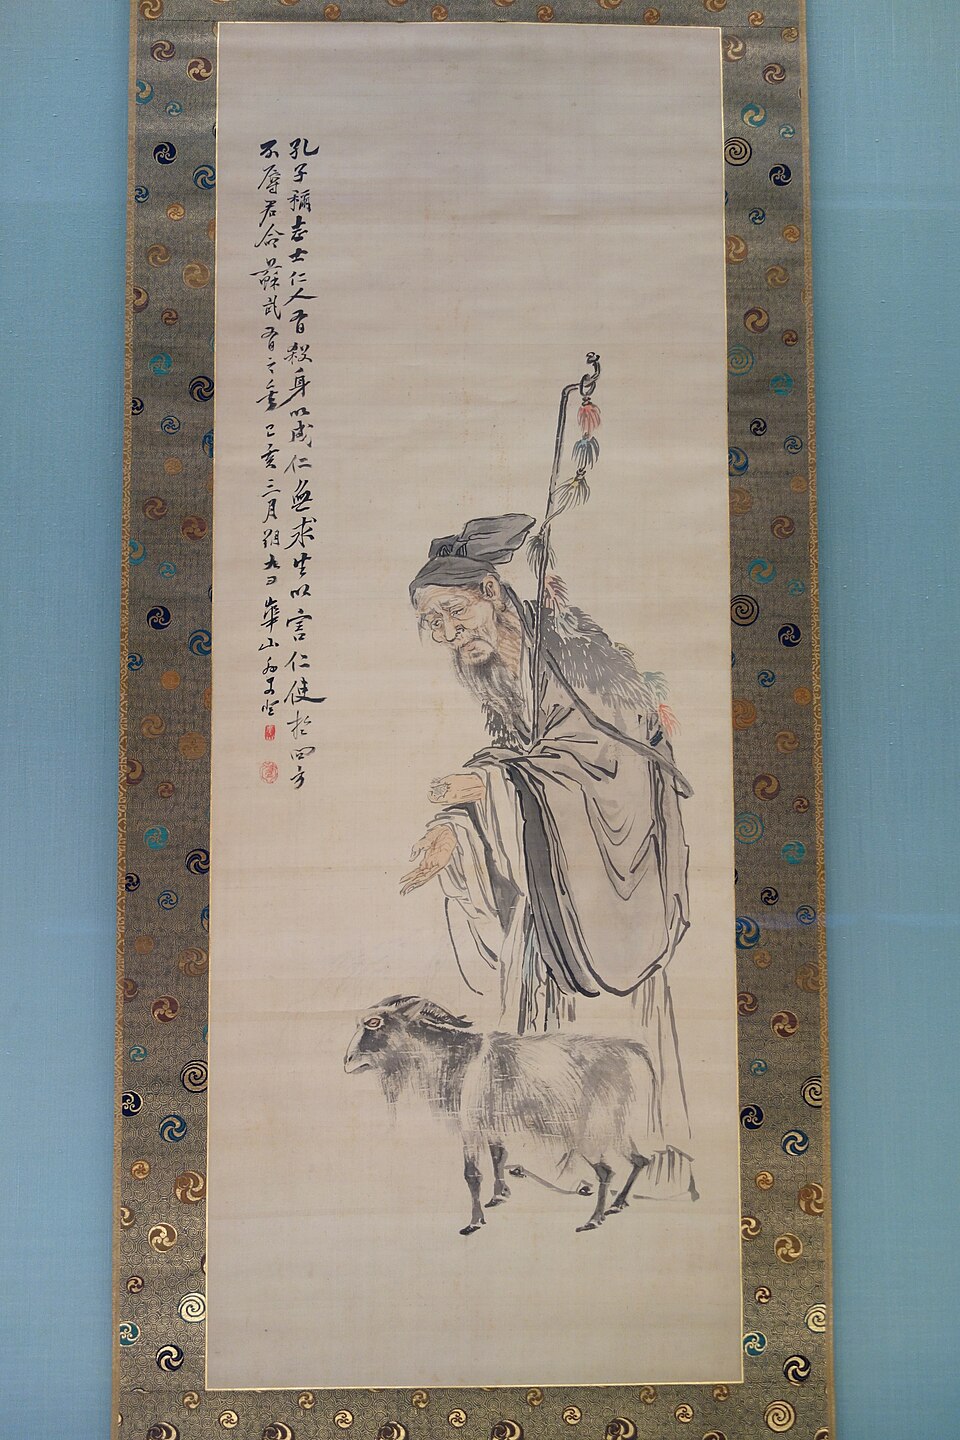 孔子稱志士仁人有殺身以成仁無求生以害仁使於四方
不辱君命蘇武有之矣己亥三月朔九日華山外史登